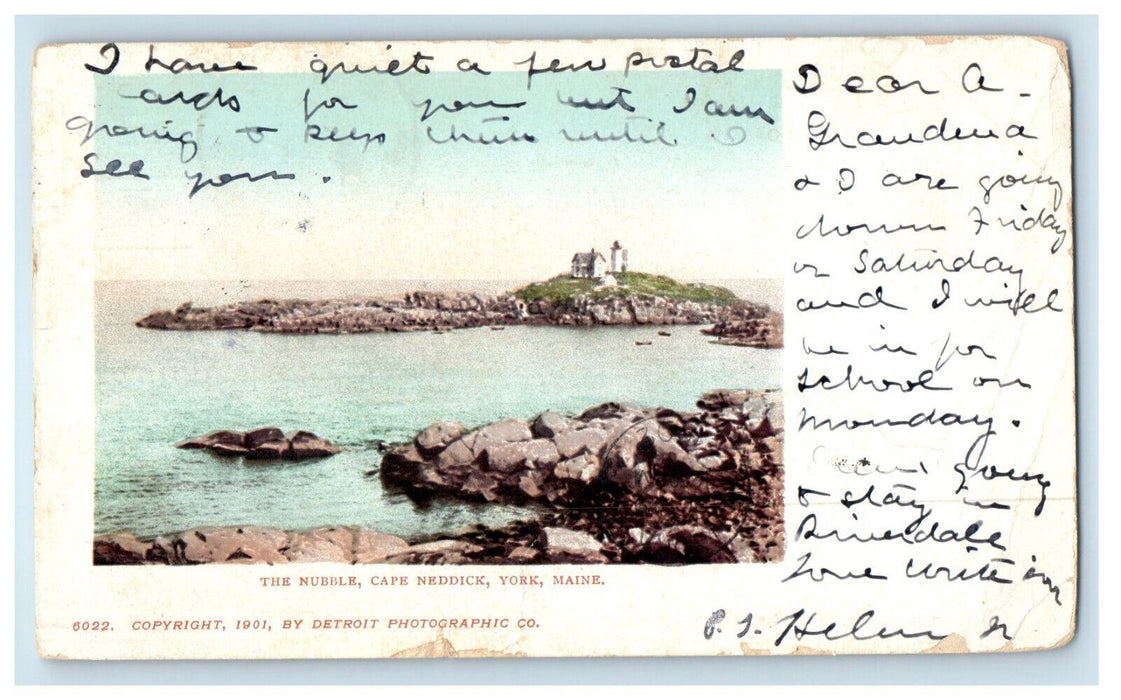 I have quiet a few postal
cards for you but I am
going to keep them until I
see you.
Dear A.
Grandma
& I are going
down Friday
or Saturday
and I will
be in for
school on
monday.
going
to stay in
Riverdale
Love write
P.S. Helen
THE NUBBLE, CAPE NEDDICK, YORK, MAINE.
6022. COPYRIGHT, 1901, BY DETROIT PHOTOGRAPHIC CO.